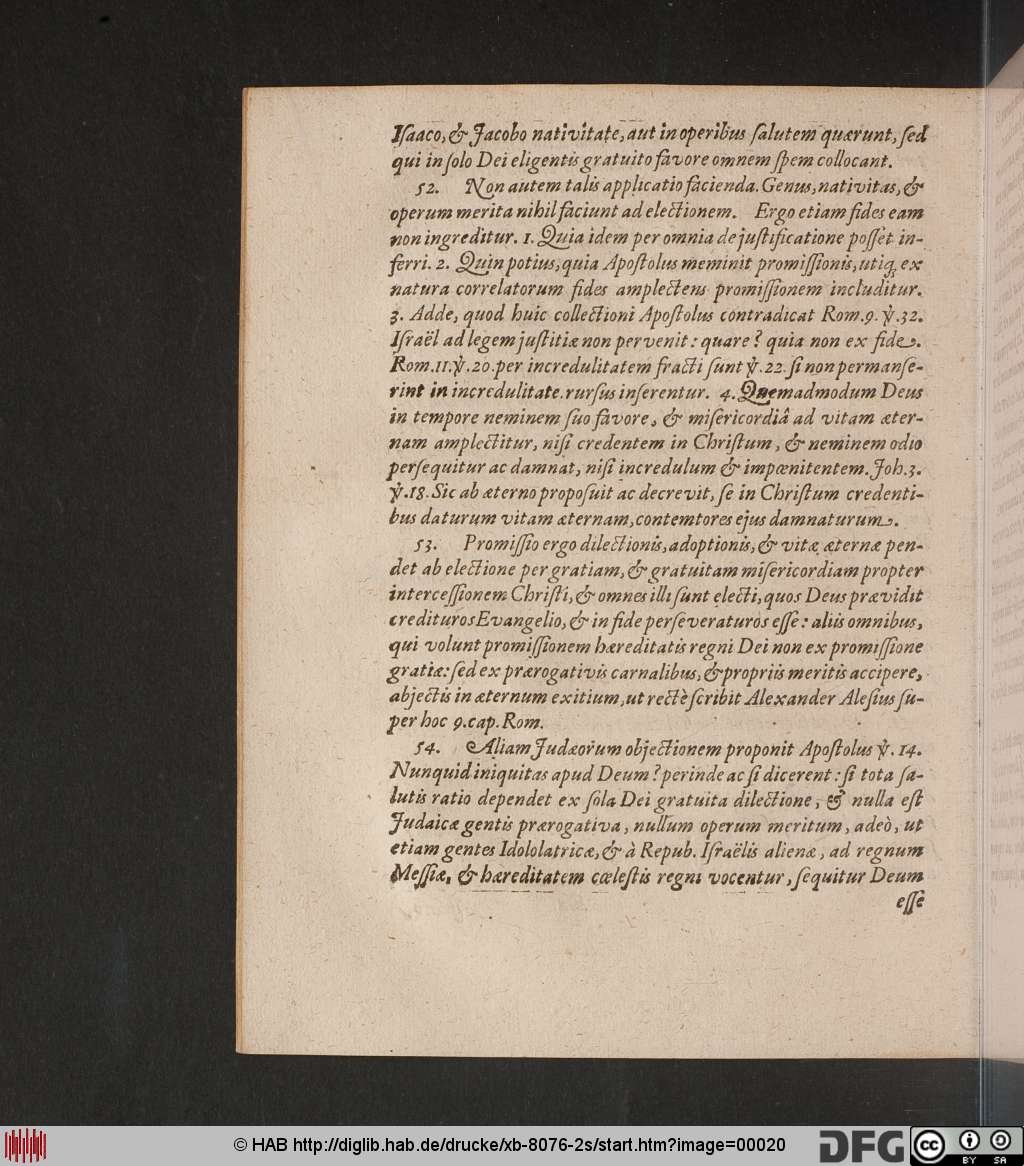 Iſaaco, & Jacobo nativitate, aut in operibus ſalutem quærunt, ſed
qui in ſolo Dei eligentis gratuito favore omnem ſpem collocant.
52. Non autem talis applicatio facienda. Genus, nativitas, &
operum merita nihil faciunt ad electionem. Ergo etiam fides eam
non ingreditur. 1. Quia idem per omnia de juſtificatione poſſet in-
ferri. 2. Quin potius, quia Apoſtolus meminit promiſſionis, utiq; ex
natura correlatorum fides amplectens promiſſionem includitur.
3. Adde, quod huic collectioni Apoſtolus contradicat Rom. 9. ℣. 32.
Iſraël ad legem juſtitiæ non pervenit: quare? quia non ex fide.
Rom. 11. ℣. 20. per incredulitatem fracti ſunt ℣. 22. ſi non permanſe-
rint in incredulitate. rurſus inſerentur. 4. Quemadmodum Deus
in tempore neminem ſuo favore, & miſericordiâ ad vitam æter-
nam amplectitur, niſi credentem in Chriſtum, & neminem odio
perſequitur ac damnat, niſi incredulum & impœnitentem. Joh. 3.
℣. 18. Sic ab æterno propoſuit ac decrevit, ſe in Chriſtum credenti-
bus daturum vitam æternam, contemtores ejus damnaturum.
53. Promiſſio ergo dilectionis, adoptionis, & vitæ æternæ pen-
det ab electione per gratiam, & gratuitam miſericordiam propter
interceſſionem Chriſti, & omnes illi ſunt electi, quos Deus prævidit
credituros Evangelio, & in fide perſeveraturos eſſe: aliis omnibus,
qui volunt promiſſionem hæreditatis regni Dei non ex promiſſione
gratiæ: ſed ex prærogativis carnalibus, & propriis meritis accipere,
abjectis in æternum exitium, ut rectè ſcribit Alexander Aleſius ſu-
per hoc 9. cap. Rom.
54. Aliam Judæorum objectionem proponit Apoſtolus ℣. 14.
Nunquid iniquitas apud Deum? perinde ac ſi dicerent: ſi tota ſa-
lutis ratio dependet ex ſola Dei gratuita dilectione, & nulla eſt
Judaicæ gentis prærogativa, nullum operum meritum, adeò, ut
etiam gentes Idololatricæ, & à Repub. Iſraëlis alienæ, ad regnum
Meſſiæ, & hæreditatem cœleſtis regni vocentur, ſequitur Deum
eſſe
© HAB http://diglib.hab.de/drucke/xb-8076-2s/start.htm?image=00020
DFG
cc BY SA